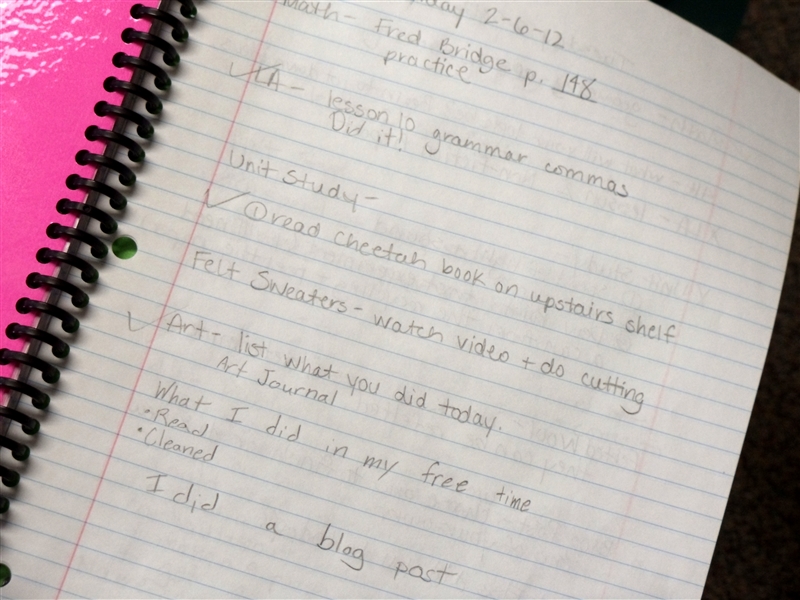 day 2-6-12
Math- Fred Bridge p. 148
practice
LA- lesson 10 grammar commas
Did it!
Unit Study-
① read cheetah book on upstairs shelf
Felt Sweaters- watch video + do cutting
Art- list what you did today.
Art Journal
What I did in my free time
• Read
• Cleaned
I did a blog post